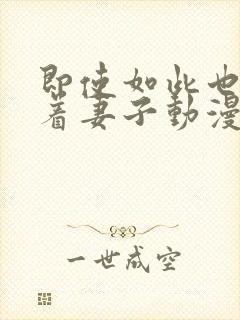 即使如此也
着妻子動漫
一世成空